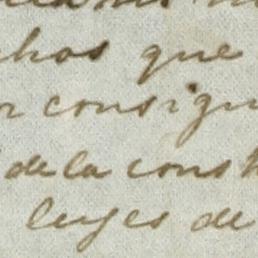 chos que
r consign
de la const
leyes de